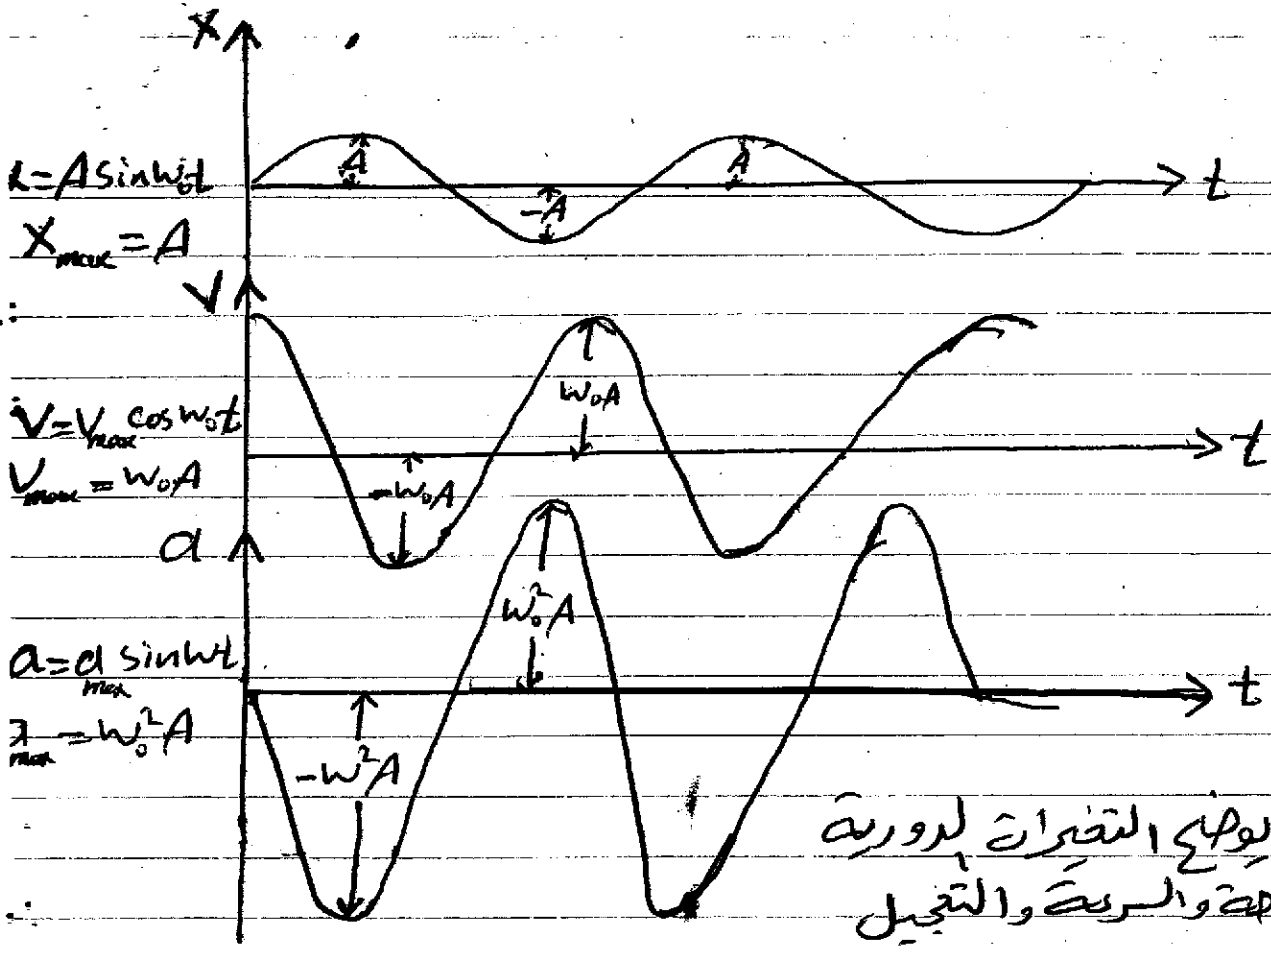 X
A
A
t
=A sin w₀t
-A
X max = A
V
w₀A
V=V max cos w₀t
t
V max = w₀A
-w₀A
a
w₀²A
a=a max sin wt
t
max = w₀²A
-w²A
يوضح التغيرات الدورية
والسرعة والتعجيل